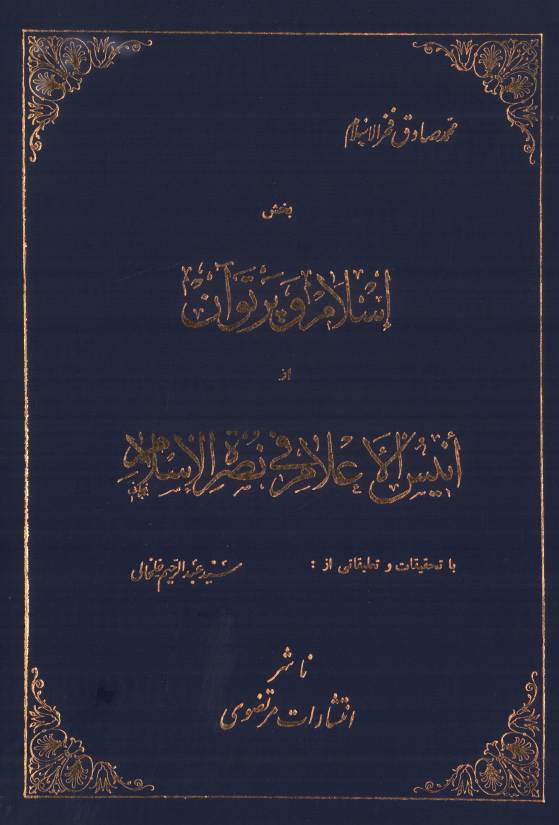 محمد صادق فخرالاسلام
بخش
إسلام و پرتو آن
از
أنیس الأعلام فی نصرة الإسلام
با تحقیقات و تعلیقاتی از : سید عبدالرحیم خلخالی
ناشر
انتشارات مرتضوی